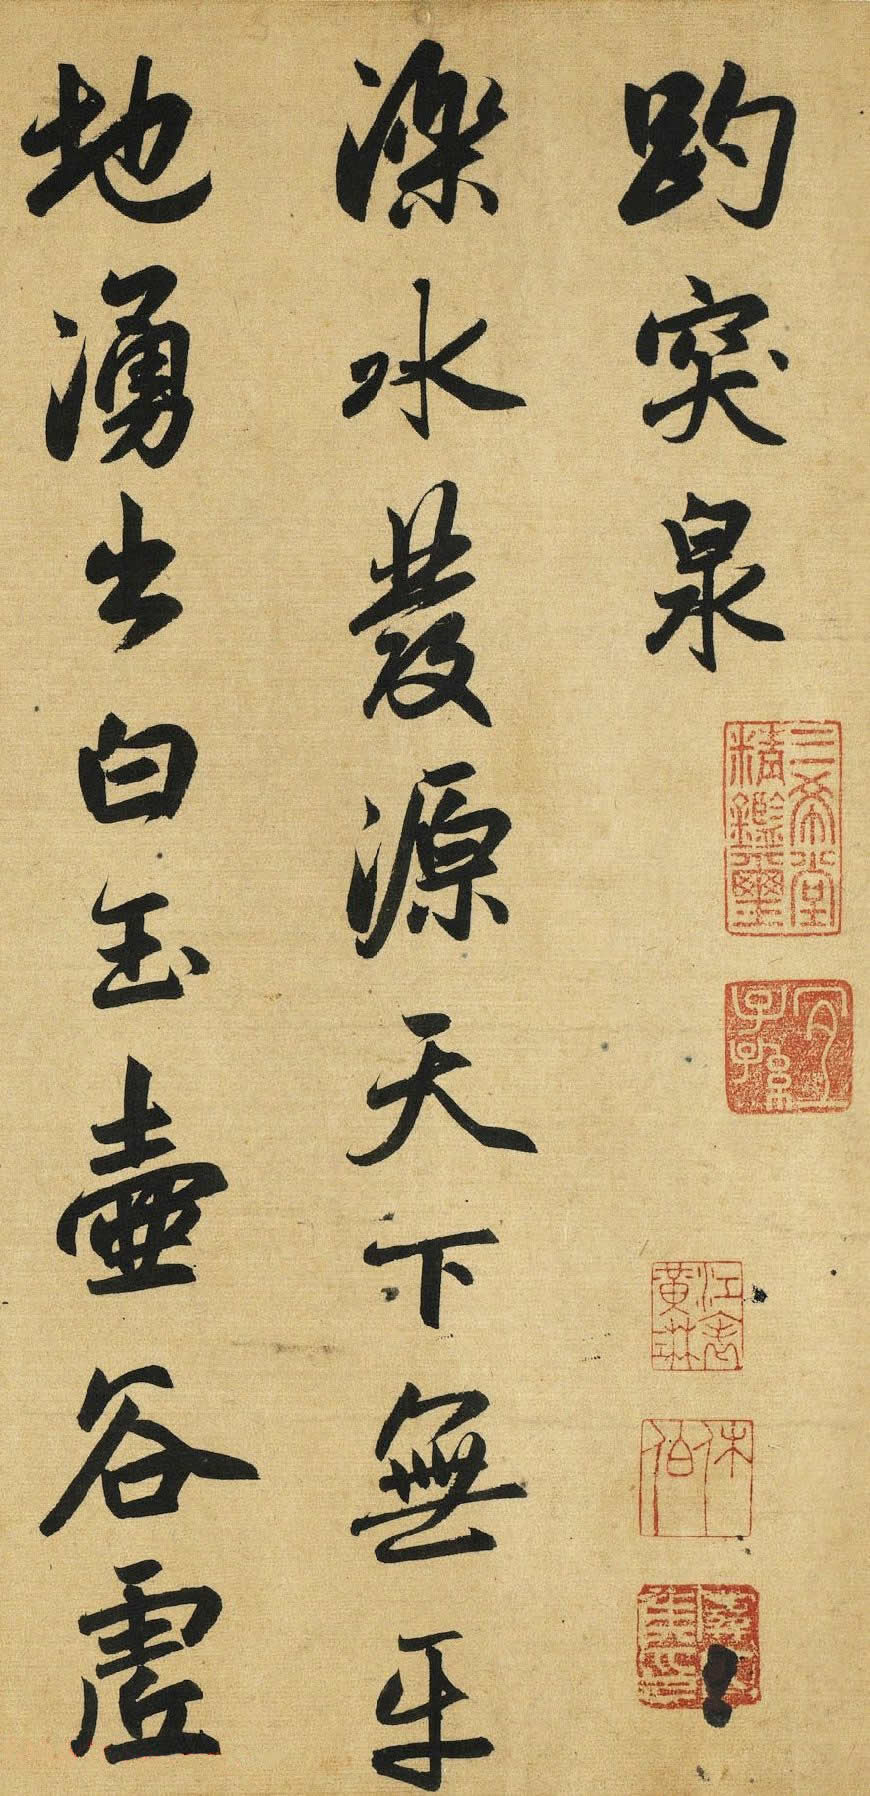 趵突泉
三希堂精鑑璽
宜子孫
江表黃琳
休伯
濼水發源天下無平
地湧出白玉壺谷虛